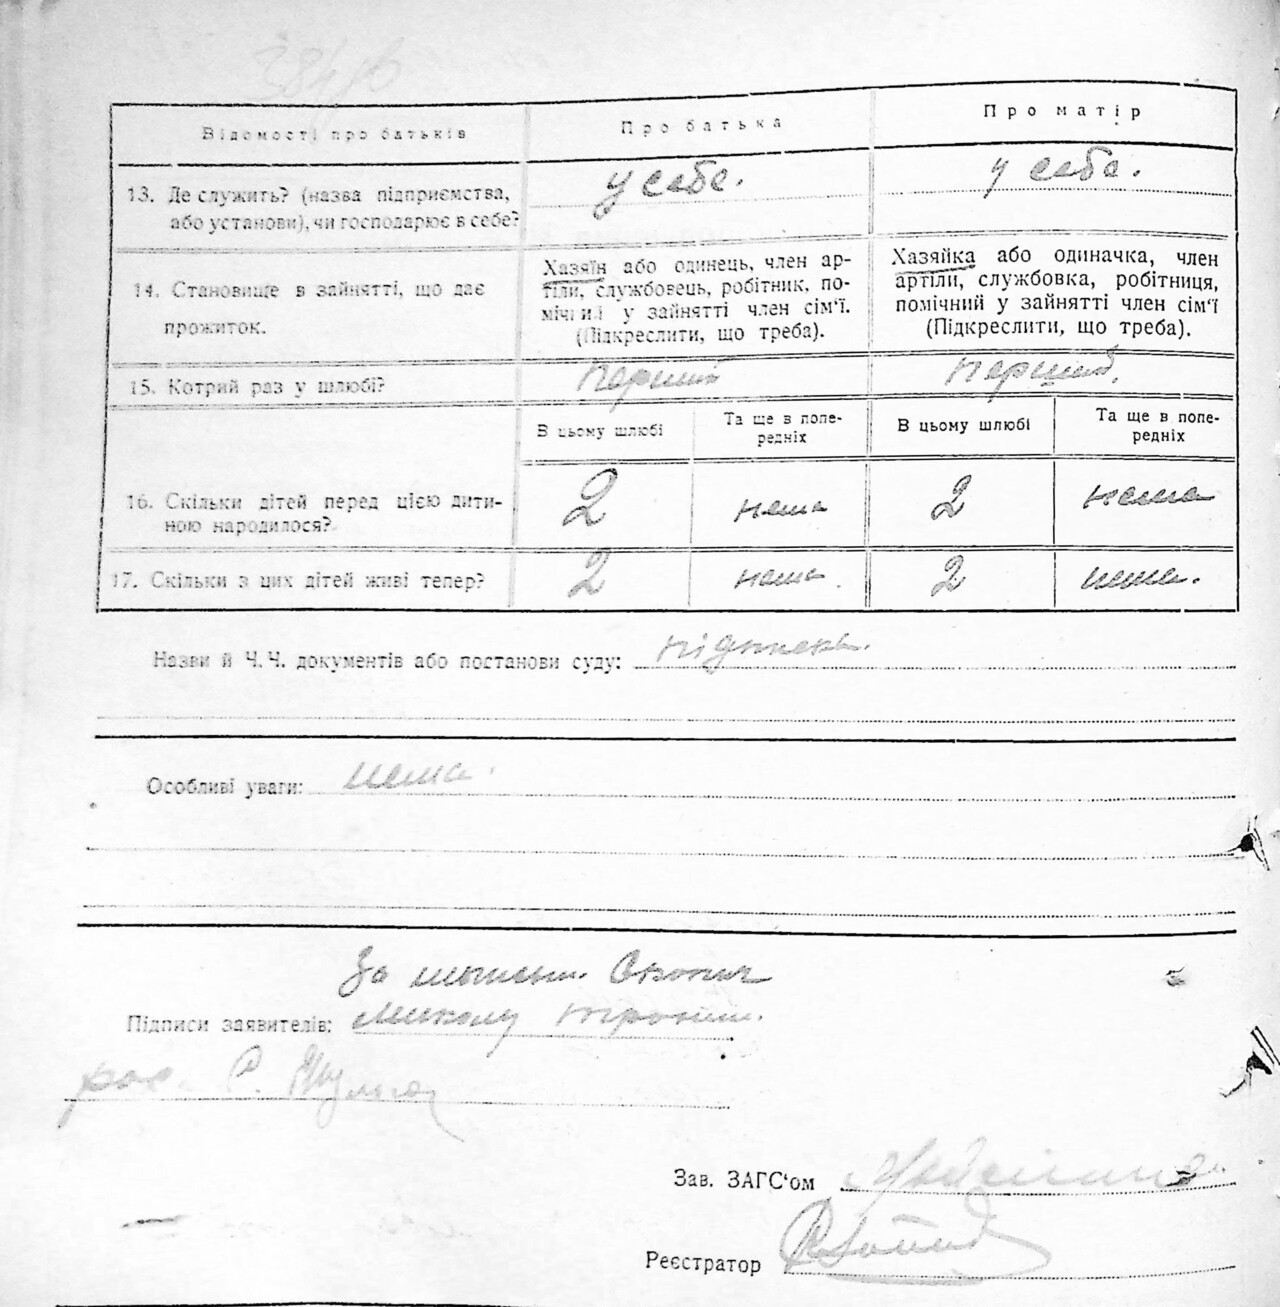 Відомості про батьків
Про батька
Про матір
13. Де служить? (назва підприємства,
або установи), чи господарює в себе?
у себе.
у себе.
14. Становище в зайнятті, що дає
прожиток.
Хазяїн або одинець, член ар-
тіли, службовець, робітник, по-
мічний у зайнятті член сім'ї.
(Підкреслити, що треба).
Хазяйка або одиначка, член
артіли, службовка, робітниця,
помічний у зайнятті член сім'ї
(Підкреслити, що треба).
15. Котрий раз у шлюбі?
перший
перший.
В цьому шлюбі
Та ще в попе-
редніх
В цьому шлюбі
Та ще в попе-
редніх
16. Скільки дітей перед цією дити-
ною народилося?
2
нема
2
нема
17. Скільки з цих дітей живі тепер?
2
нема.
2
нема.
Назви й Ч. Ч. документів або постанови суду:
Особливі уваги: нема.
За
Підписи заявителів: Миколу
рос. Р.
Зав. ЗАГС'ом
Реєстратор